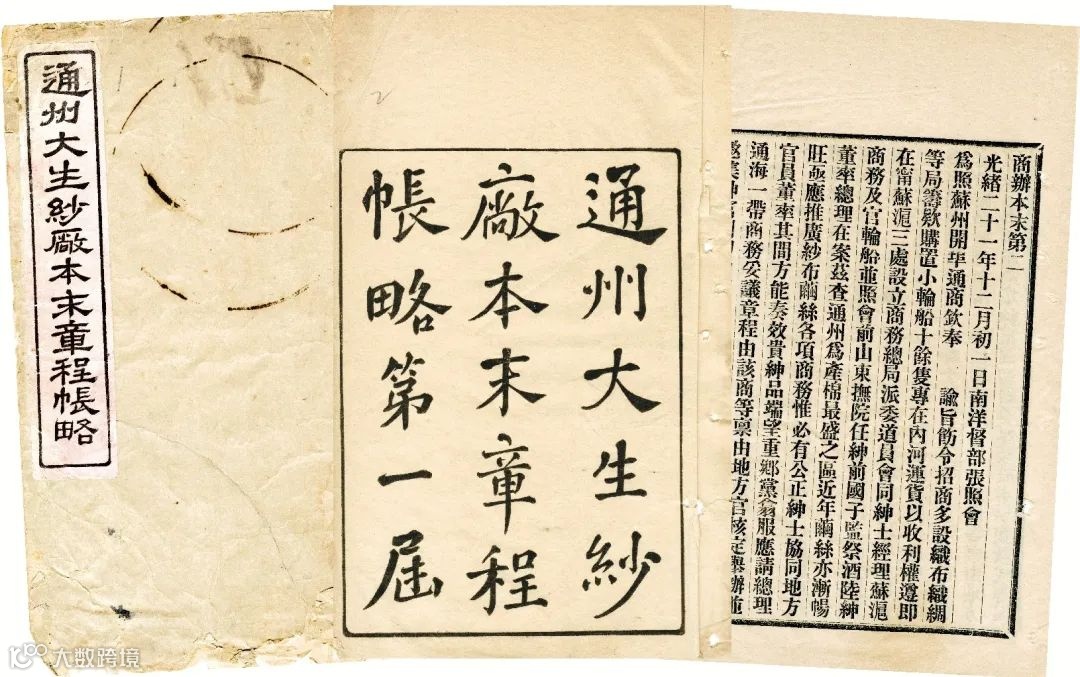 通州大生紗廠本末章程帳略
通州大生紗
廠本末章程
帳略第一屆
商辦本末第二
光緒二十一年十二月初一日南洋督部張照會
為照蘇州開埠通商欽奉　諭旨飭令招商多設織布織綢
等局籌欵購置小輪船十餘隻專在內河運貨以收利權遵即
在甯蘇滬三處設立商務總局派委道員會同紳士經理蘇滬
商務及官輪船並照會前山東撫院任紳前國子監祭酒陸紳
董率總理在案茲查通州為產棉最盛之區近年繭絲亦漸暢
旺亟應推廣紗布繭絲各項商務惟必有公正紳士協同地方
官員董率其間方能奏效貴紳品端望重鄉黨翕服應請總理
通海一帶商務妥議章程由該商等禀由地方官核定舉辦並
大数跨境